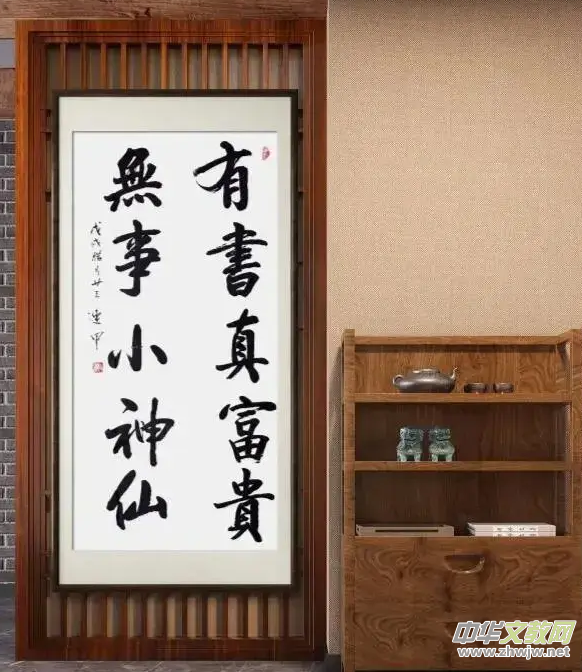 有書真富貴
無事小神仙
戊戌臘月廿三 連甲
中华文教网
www.zhwjw.net